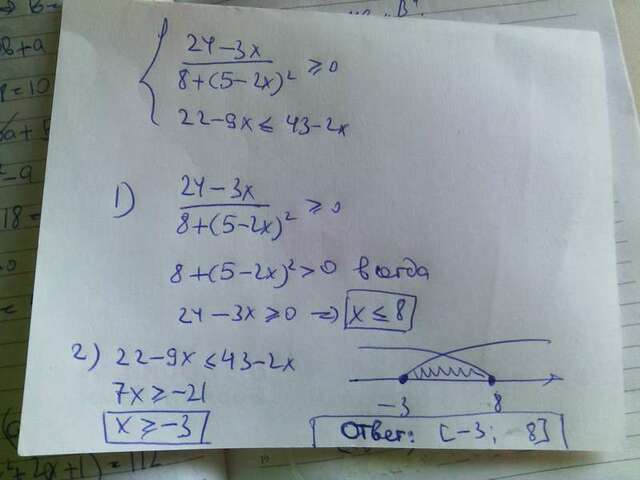 24-3x
8+(5-2x)² ≥0
22-9x≤ 43-2x
1) 24-3x
8+(5-2x)² ≥0
8+(5-2x)²>0 всегда
24-3x≥0 => x≤8
2) 22-9x≤43-2x
7x≥-21
x≥-3
-3 8
Ответ: [-3; 8]